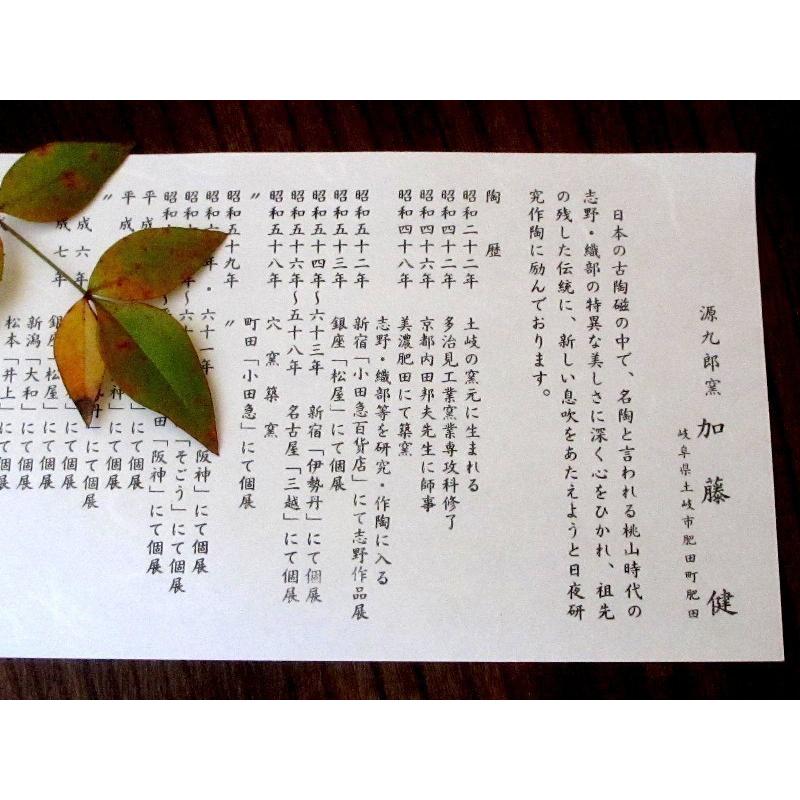 源九郎窯 加藤 健
岐阜県土岐市肥田町肥田
日本の古陶磁の中で、名陶と言われる桃山時代の
志野・織部の特異な美しさに深く心をひかれ、祖先
の残した伝統に、新しい息吹をあたえようと日夜研
究作陶に励んでおります。
陶歴
昭和二十二年 土岐の窯元に生まれる
昭和四十二年 多治見工業窯業専攻科修了
昭和四十六年 京都内田邦夫先生に師事
昭和四十八年 美濃肥田にて築窯
志野・織部等を研究・作陶に入る
昭和五十二年 新宿「小田急百貨店」にて志野作品展
昭和五十三年 銀座「松屋」にて個展
昭和五十四年〜六十三年 新宿「伊勢丹」にて個展
昭和五十六年〜五十八年 名古屋「三越」にて個展
昭和五十八年 穴窯築窯
〃 町田「小田急」にて個展
昭和五十九年 〃
昭和六十年・六十一年 阪神」にて個展
昭和 「そごう」にて個展
平成 田「阪神」にて個展
平成 神」にて個展
〃 にて個展
成六年 丹」にて個展
成七年 にて個展
銀座「松屋」にて個展
新潟「大和」にて個展
松本「井上」にて個展